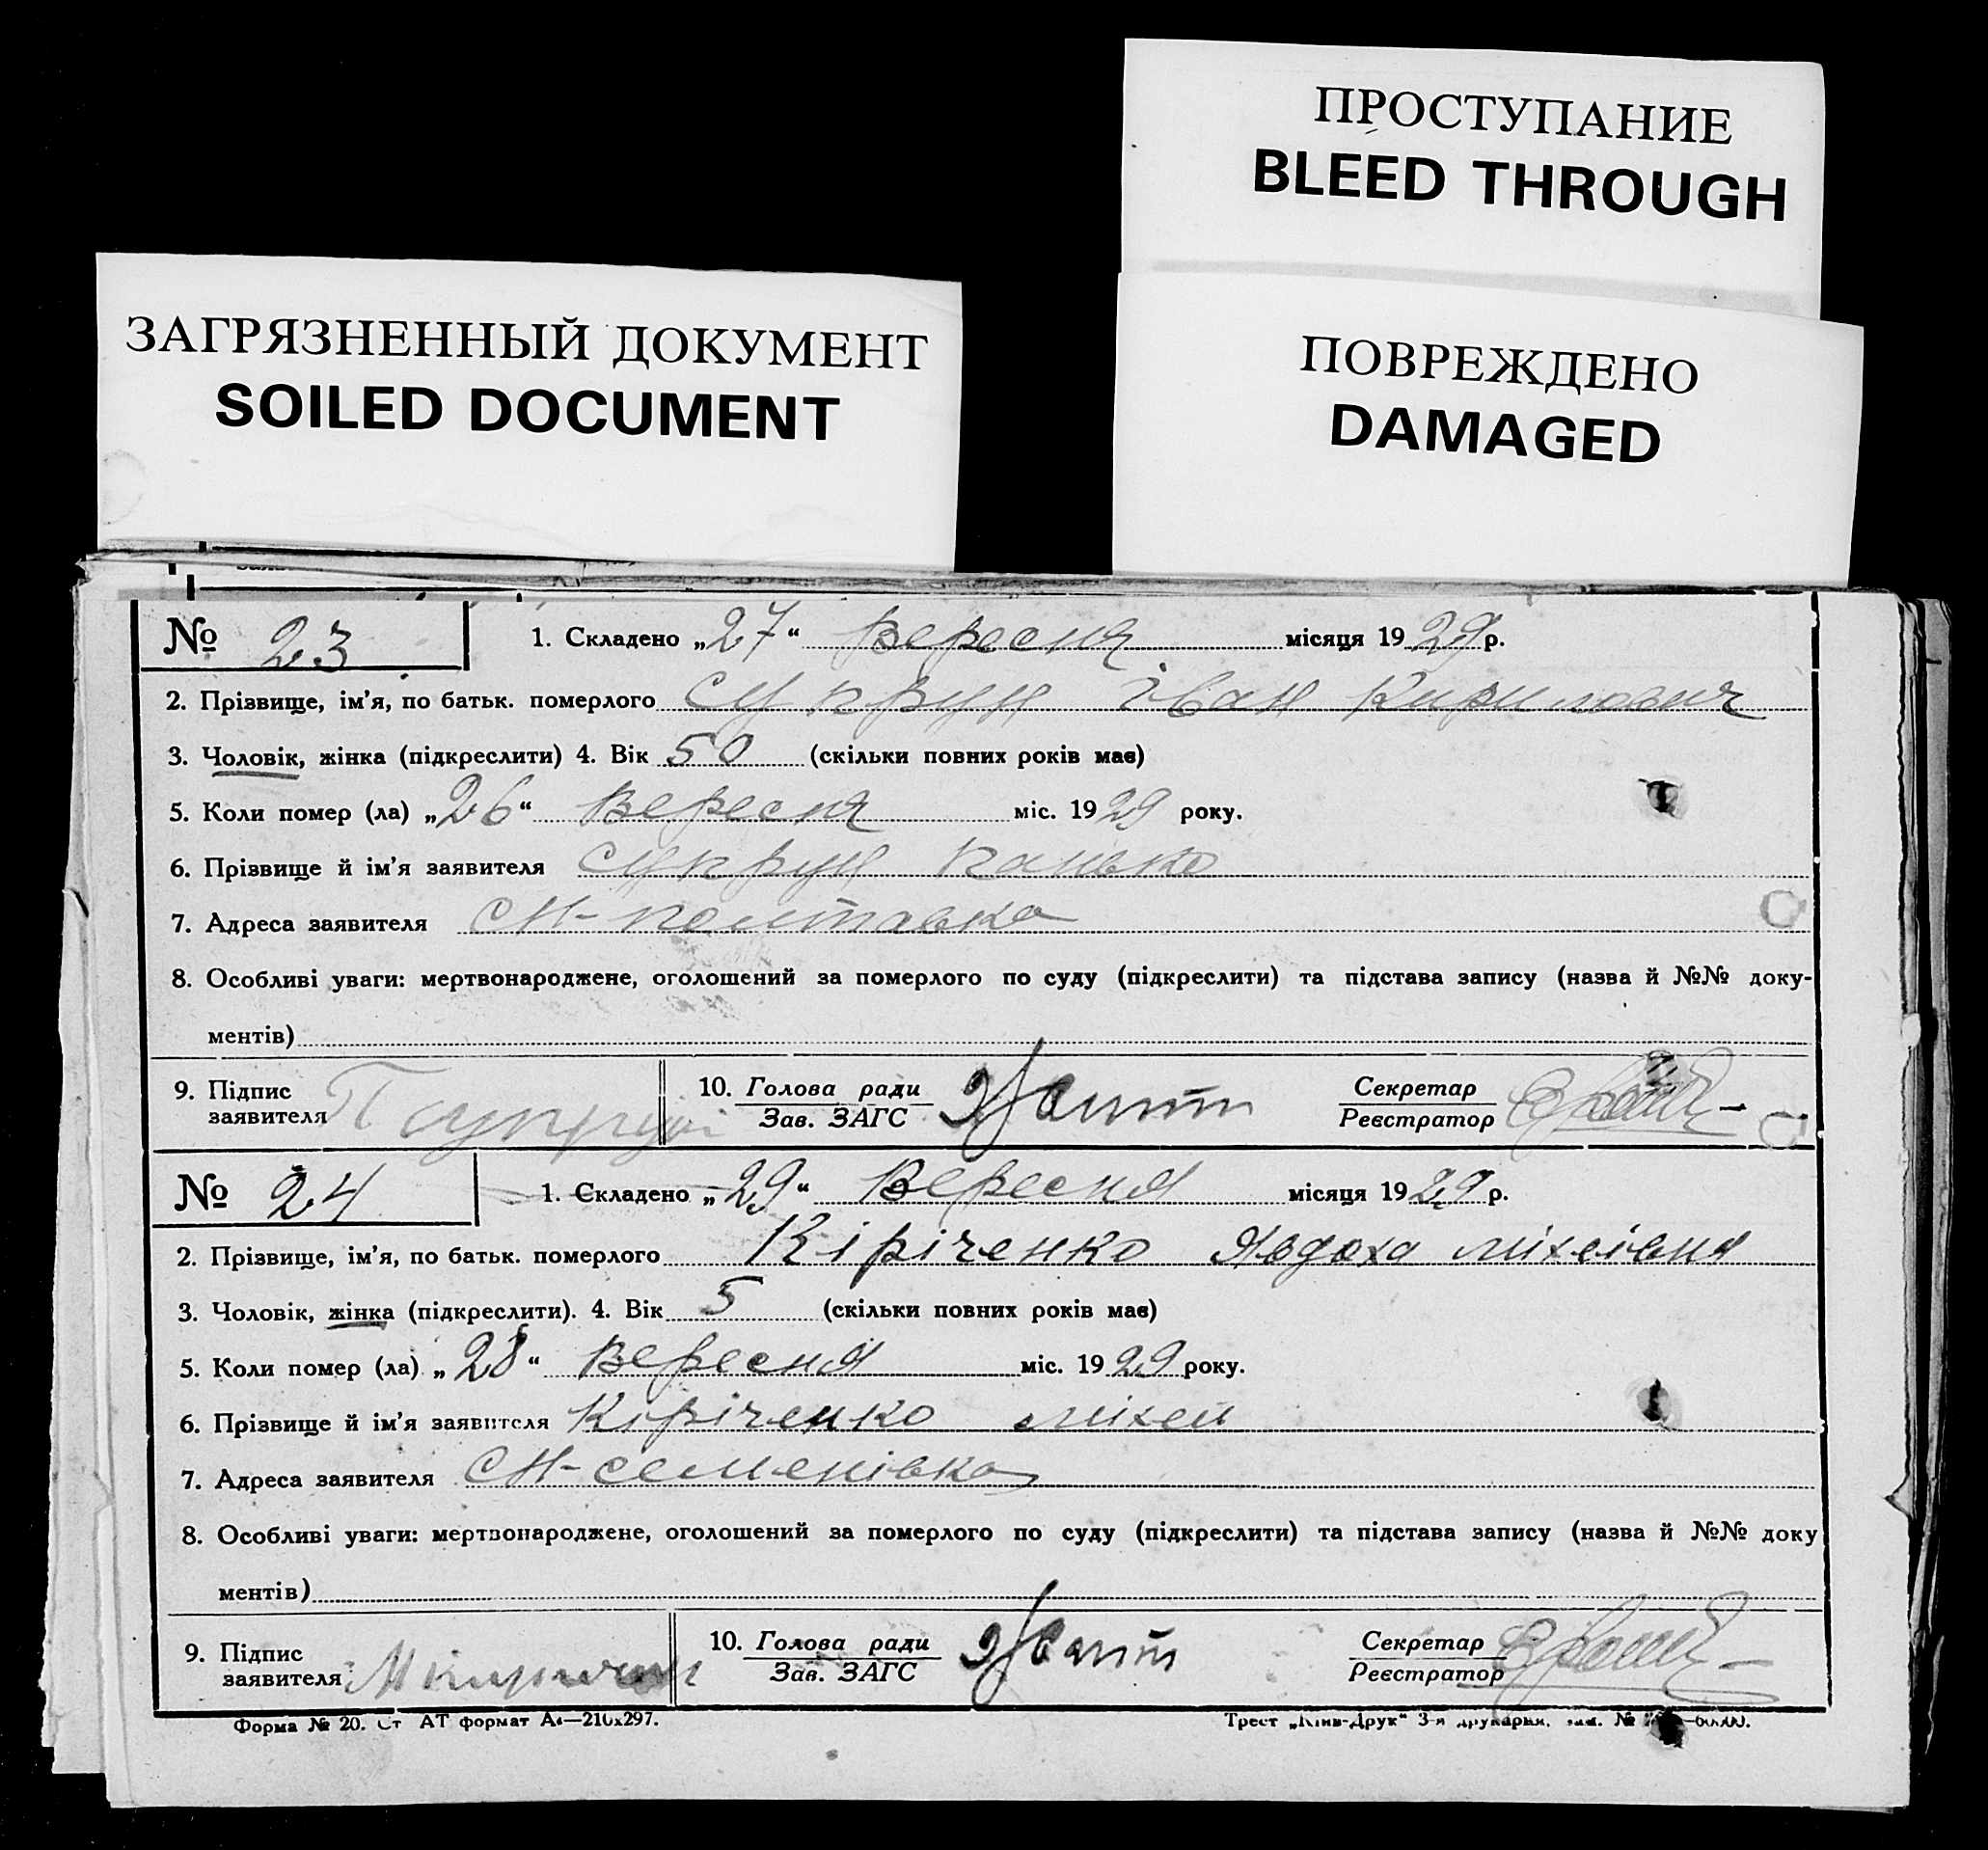 ПРОСТУПАНИЕ
BLEED THROUGH
ЗАГРЯЗНЕННЫЙ ДОКУМЕНТ
SOILED DOCUMENT
ПОВРЕЖДЕНО
DAMAGED
№ 23
1. Складено „27“ Вересня місяця 1929 р.
2. Прізвище, ім'я, по батьк. померлого Супрун Іван Кирилович
3. Чоловік, жінка (підкреслити) 4. Вік 50 (скільки повних років має)
5. Коли помер (ла) „26“ Вересня міс. 1929 року.
6. Прізвище й ім'я заявителя Супрун Панько
7. Адреса заявителя СН-Полтавка
8. Особливі уваги: мертвонароджене, оголошений за померлого по суду (підкреслити) та підстава запису (назва й №№ доку-
ментів)
9. Підпис заявителя
10. Голова ради
Зав. ЗАГС
Секретар
Реєстратор
№ 24
1. Складено „29“ Вересня місяця 1929 р.
2. Прізвище, ім'я, по батьк. померлого Кіріченко Явдоха Міхеівня
3. Чоловік, жінка (підкреслити). 4. Вік 5 (скільки повних років має)
5. Коли помер (ла) „28“ Вересня міс. 1929 року.
6. Прізвище й ім'я заявителя Кіріченко Міхей
7. Адреса заявителя СН-Семенівка
8. Особливі уваги: мертвонароджене, оголошений за померлого по суду (підкреслити) та підстава запису (назва й №№ доку
ментів)
9. Підпис заявителя
10. Голова ради
Зав. ЗАГС
Секретар
Реєстратор
Форма № 20. Ст АТ формат А4—210х297.
Трест „Київ-Друк“ 3-я друкарня.